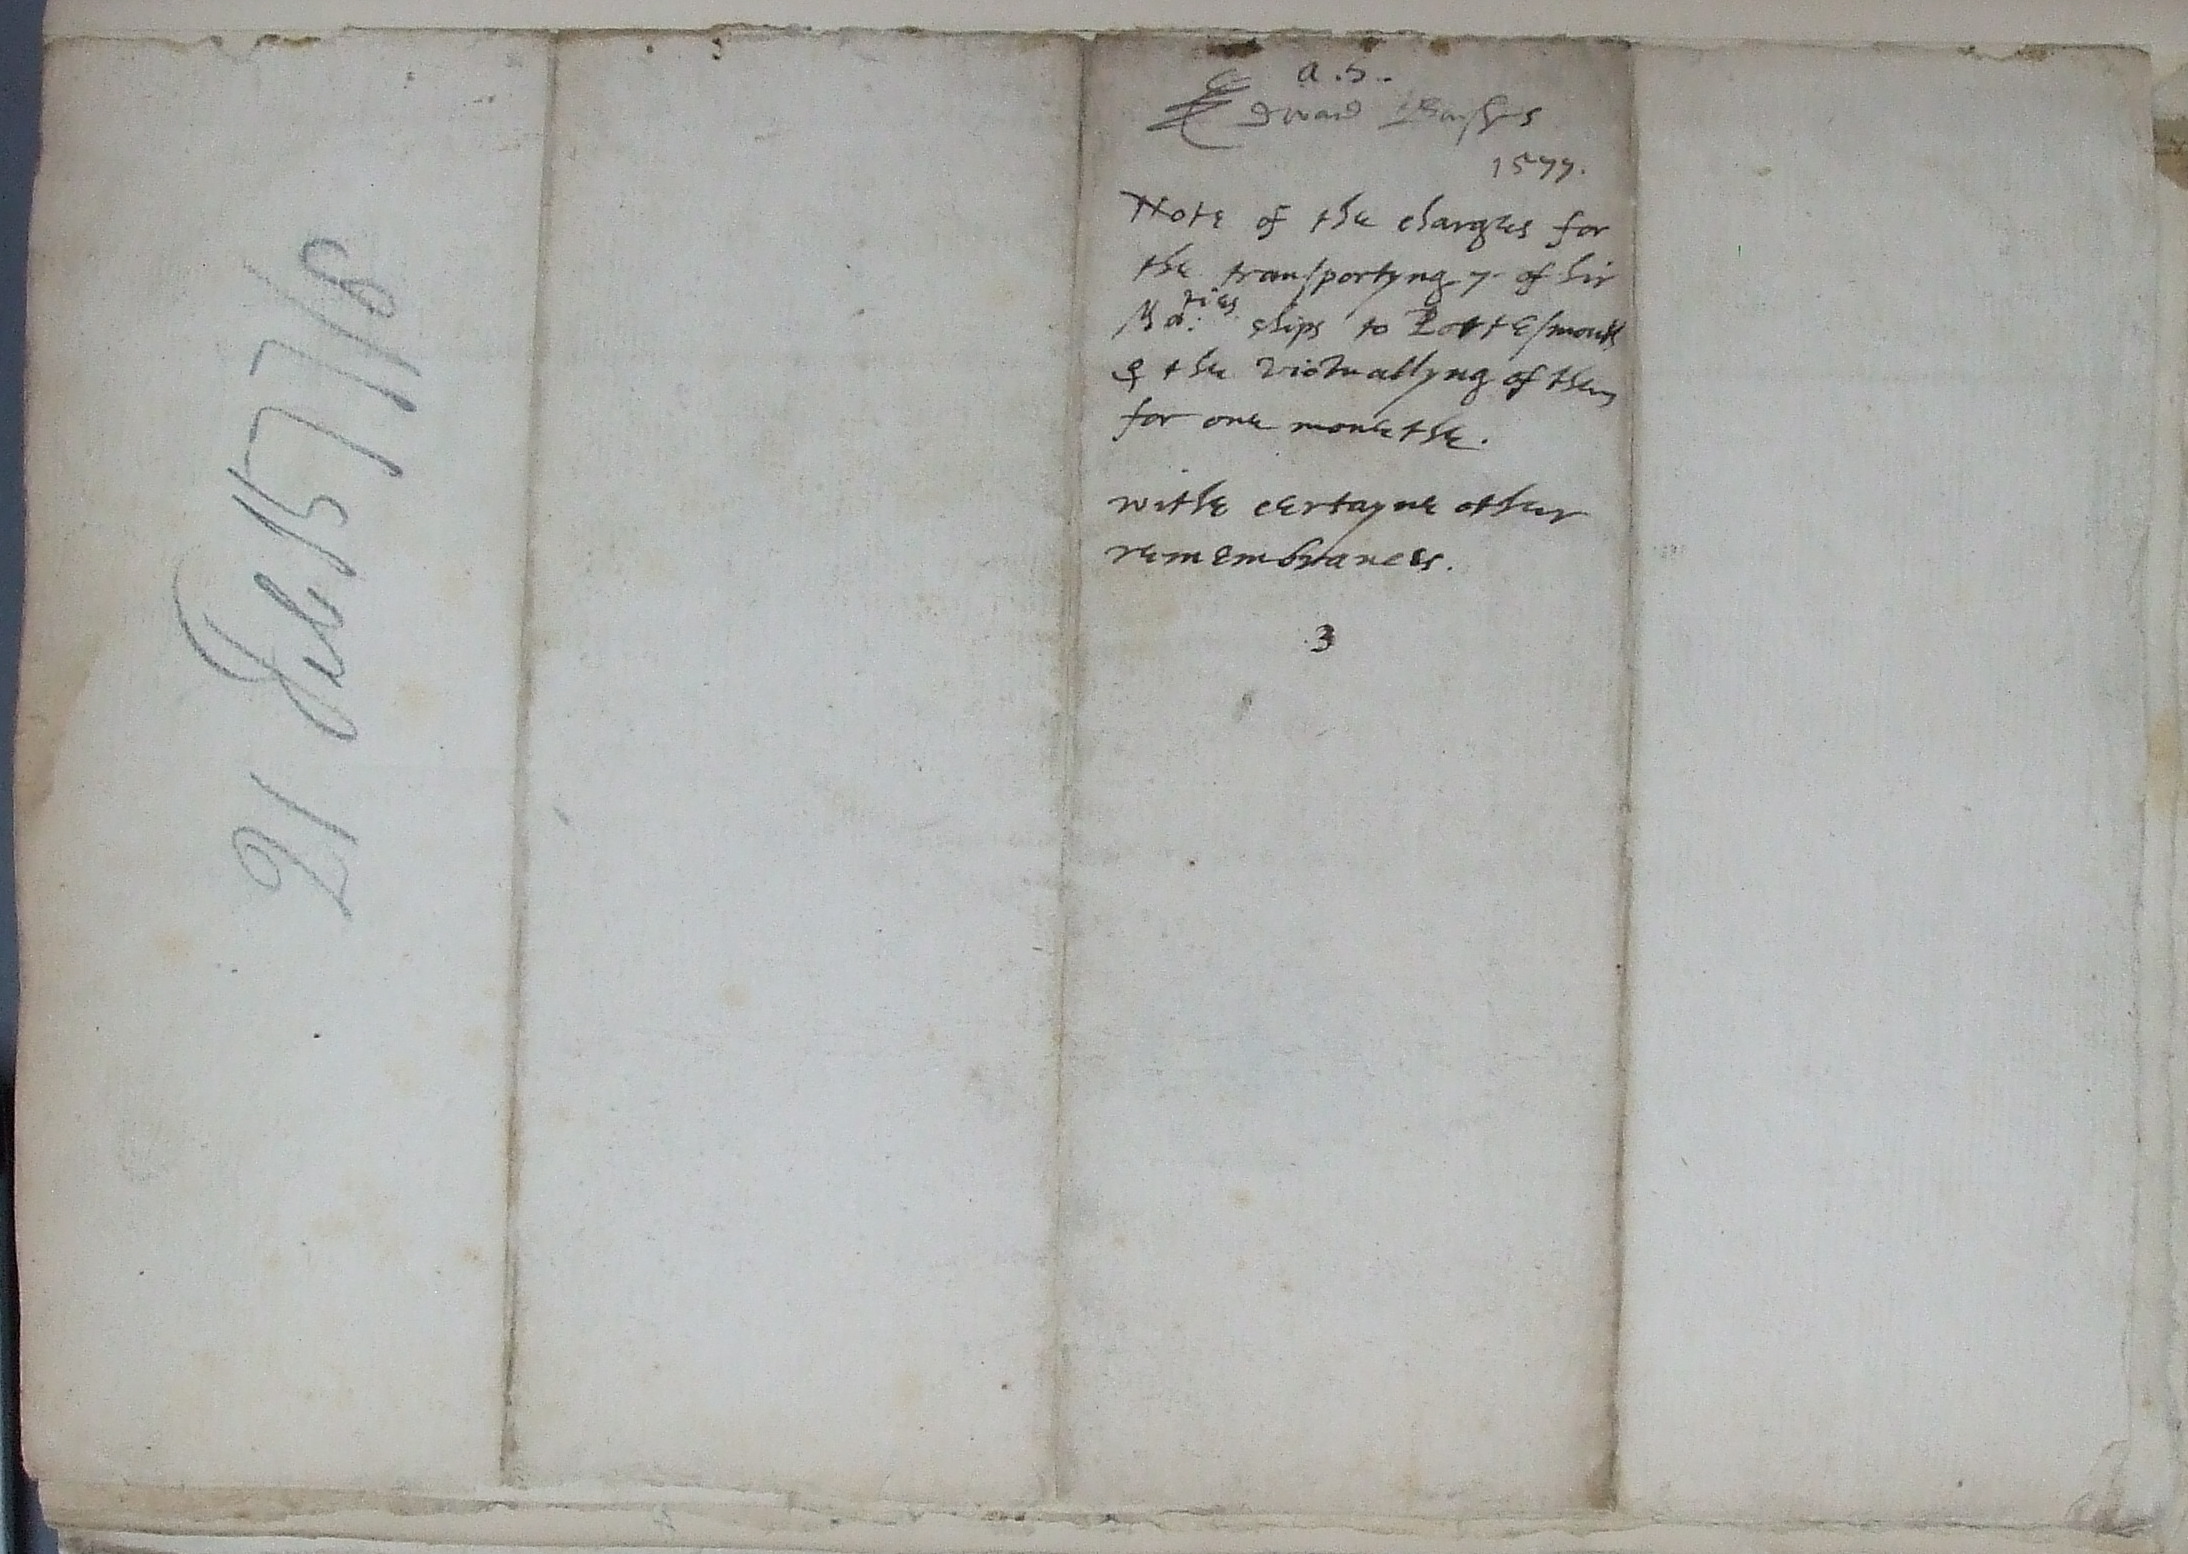 21 Feb 1577/8
a. 5..
Edward Baeshes
1577.
Note of the charges for
the transportyng 7 of hir
Ma:ties ships to Portesmouth
& the victuallyng of them
for one monethe.
withe certayne other
remembrances.
3